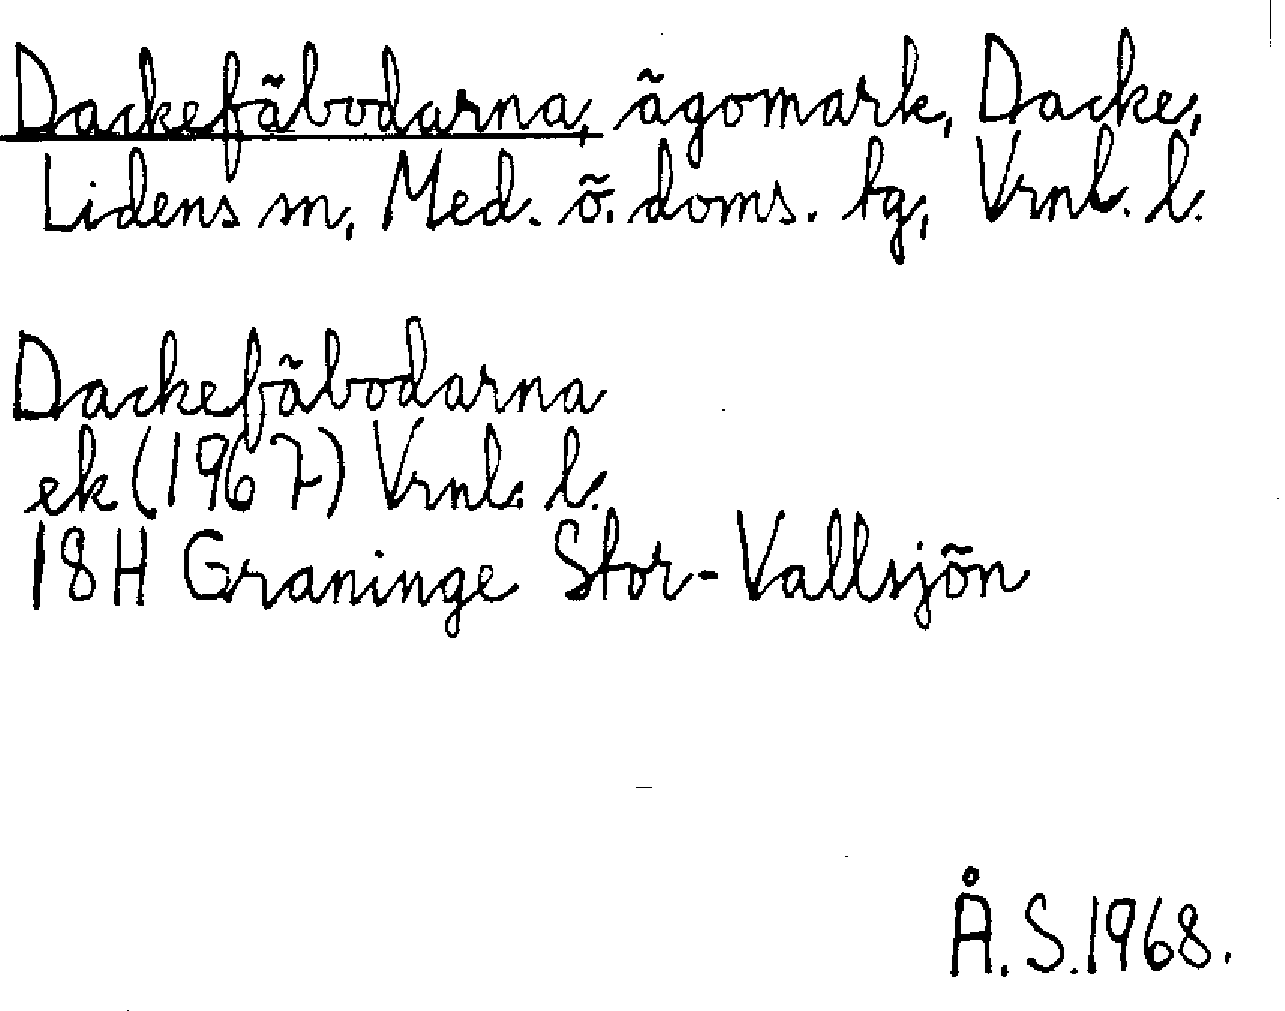 Dackefäbodarna, ägomark, Dacke,
Lidens sn, Med. ö. doms. tg, Vrnl. l.
Dackefäbodarna
ek (1967) Vrnl. l.
18H Graninge Stor-Vallsjön
Å. S. 1968.